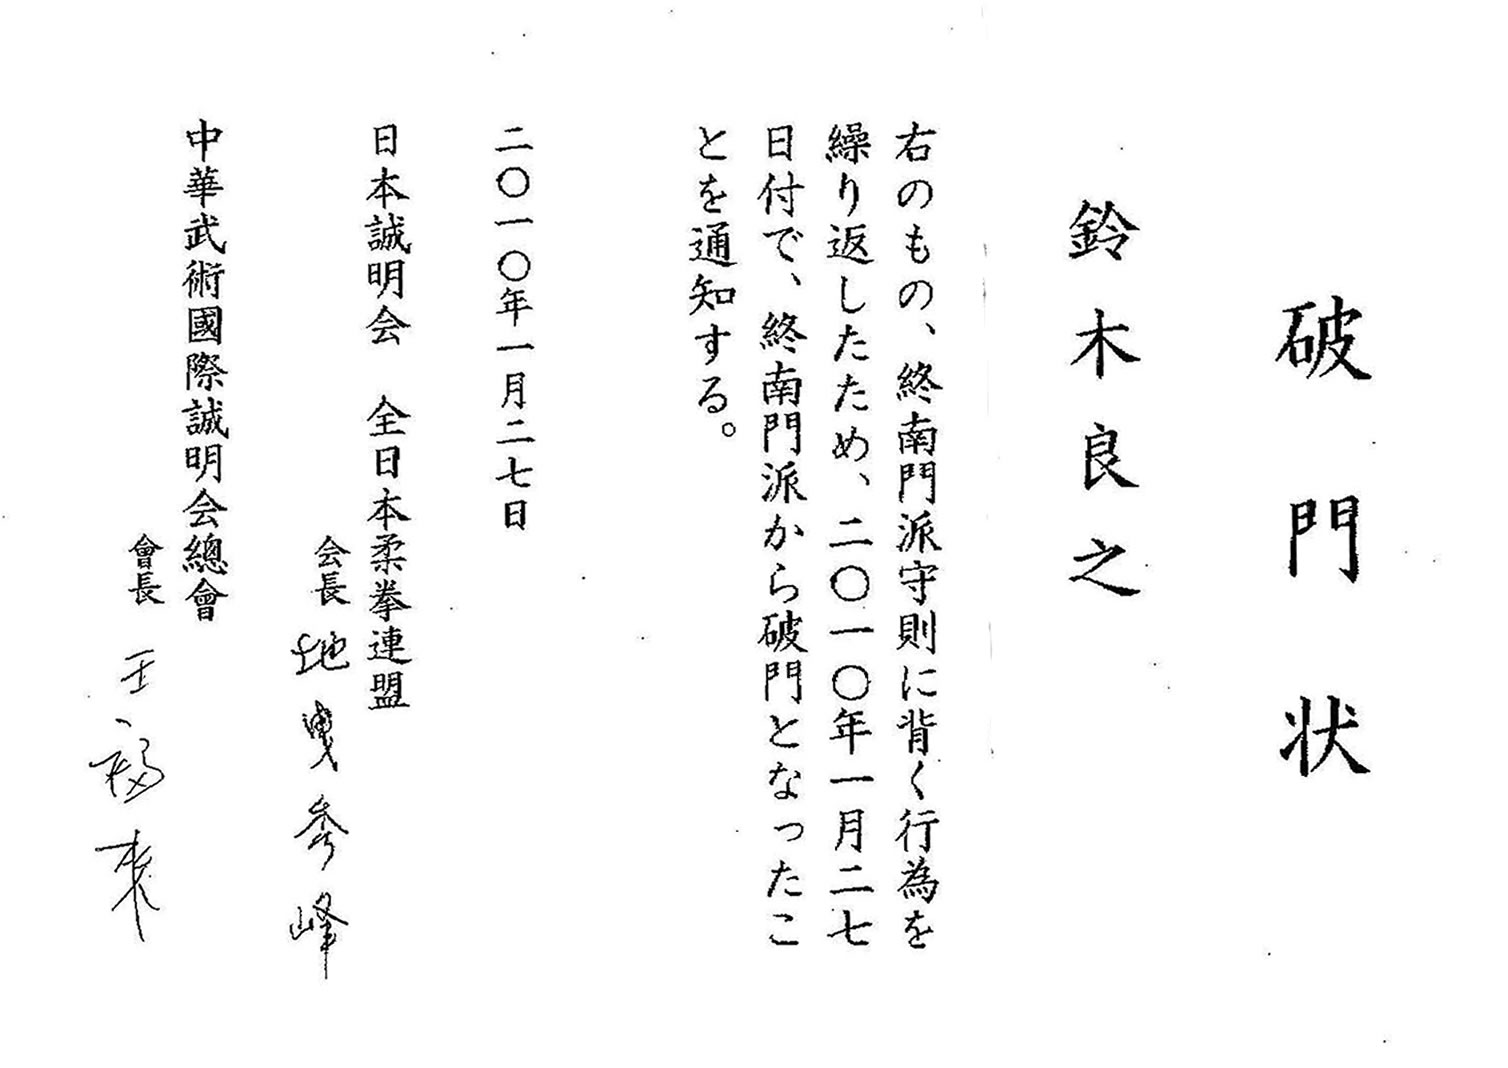 破門状
鈴木良之
右のもの、終南門派守則に背く行為を
繰り返したため、二〇一〇年一月二七
日付で、終南門派から破門となったこ
とを通知する。
二〇一〇年一月二七日
日本誠明会　全日本柔拳連盟
会長 地曳秀峰
中華武術國際誠明会總會
會長 王福来